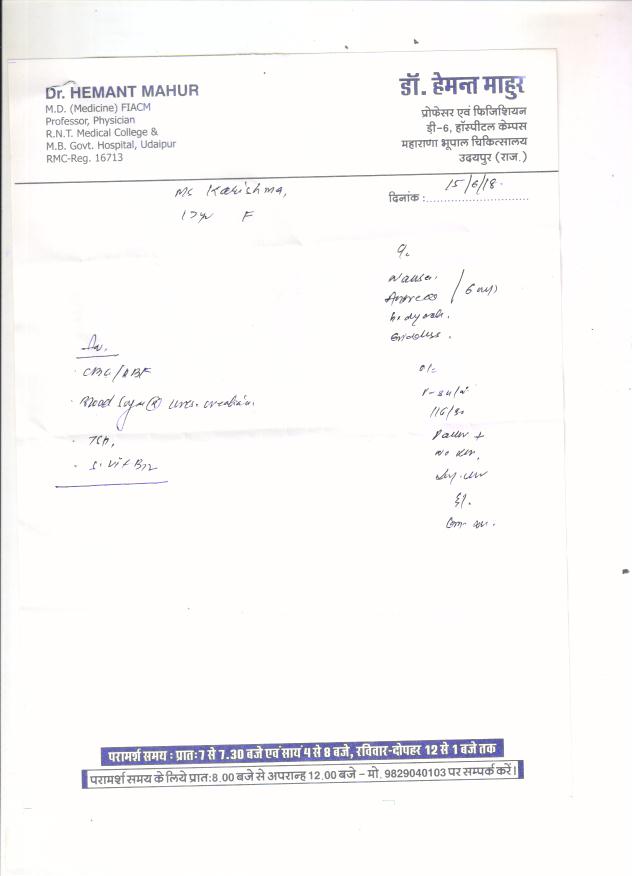 Dr. HEMANT MAHUR
M.D. (Medicine) FIACM
Professor, Physician
R.N.T. Medical College &
M.B. Govt. Hospital, Udaipur
RMC-Reg. 16713
डॉ. हेमन्त माहुर
प्रोफेसर एवं फिजिशियन
डी-6, हॉस्पीटल केम्पस
महाराणा भूपाल चिकित्सालय
उदयपुर (राज.)
दिनांक : 15/6/18.
Ms Karishma,
17yr F
Nausea.
Bodyache.
Giddiness.
O/E
116/80
CBC/PBF
Blood Sugar (R) Urea. Creatinin.
TSH,
S. Vit B12
परामर्श समय : प्रातः 7 से 7.30 बजे एवं सायं 4 से 8 बजे, रविवार-दोपहर 12 से 1 बजे तक
परामर्श समय के लिये प्रातः 8.00 बजे से अपरान्ह 12.00 बजे - मो. 9829040103 पर सम्पर्क करें।